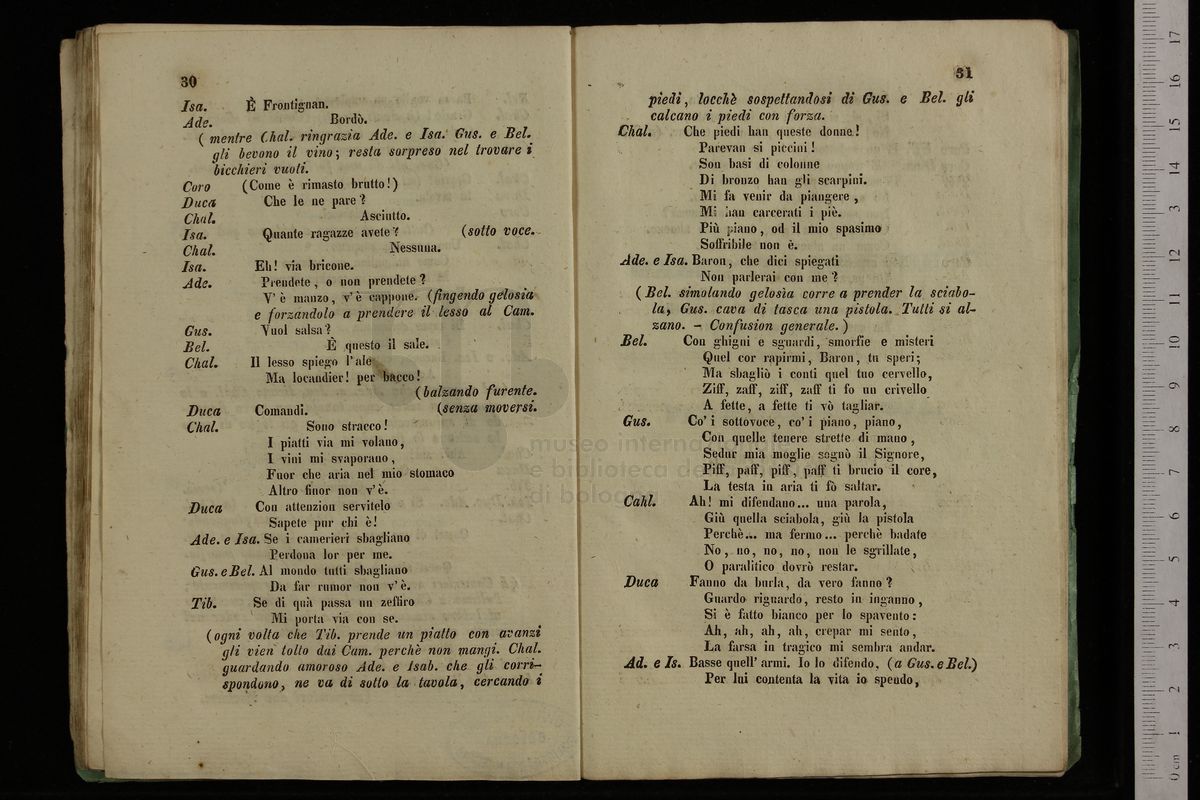 30
Isa. È Frontignan.
Ade. Bordò.
( mentre Chal. ringrazia Ade. e Isa. Gus. e Bel.
gli bevono il vino; resta sorpreso nel trovare i
bicchieri vuoti.
Coro (Come è rimasto brutto!)
Duca Che le ne pare?
Chal. Asciutto.
Isa. Quante ragazze avete? (sotto voce.
Chal. Nessuna.
Isa. Eh! via bricone.
Ade. Prendete, o non prendete?
V' è manzo, v' è cappone. (fingendo gelosia
e forzandolo a prendere il lesso al Cam.
Gus. Vuol salsa?
Bel. È questo il sale.
Chal. Il lesso spiegò l'ale
Ma locandier! per bacco!
(balzando furente.
Duca Comandi. (senza moversi.
Chal. Sono stracco!
I piatti via mi volano,
I vini mi svaporano,
Fuor che aria nel mio stomaco
Altro finor non v'è.
Duca Con attenzion servitelo
Sapete pur chi è!
Ade. e Isa. Se i camerieri sbagliano
Perdona lor per me.
Gus. e Bel. Al mondo tutti sbagliano
Da far rumor non v'è.
Tib. Se di quà passa un zeffiro
Mi porta via con se.
(ogni volta che Tib. prende un piatto con avanzi
gli vien tolto dai Cam. perchè non mangi. Chal.
guardando amoroso Ade. e Isab. che gli corri-
spondono, ne va di sotto la tavola, cercando i
31
piedi, locchè sospettandosi di Gus. e Bel. gli
calcano i piedi con forza.
Chal. Che piedi han queste donne!
Parevan si piccini!
Son basi di colonne
Di bronzo han gli scarpini.
Mi fa venir da piangere,
Mi han carcerati i piè.
Più piano, od il mio spasimo
Soffribile non è.
Ade. e Isa. Baron, che dici spiegati
Non parlerai con me?
(Bel. simolando gelosìa corre a prender la sciabo-
la, Gus. cava di tasca una pistola. Tutti si al-
zano. - Confusion generale.)
Bel. Con ghigni e sguardi, smorfie e misteri
Quel cor rapirmi, Baron, tu speri;
Ma sbagliò i conti quel tuo cervello,
Ziff, zaff, ziff, zaff ti fo un crivello
A fette, a fette ti vò tagliar.
Gus. Co' i sottovoce, co' i piano, piano,
Con quelle tenere strette di mano,
Sedur mia moglie sognò il Signore,
Piff, paff, piff, paff ti brucio il core,
La testa in aria ti fò saltar.
Cahl. Ah! mi difendano... una parola,
Giù quella sciabola, giù la pistola
Perchè... ma fermo... perchè badate
No, no, no, no, non le sgrillate,
O paralitico dovrò restar.
Duca Fanno da burla, da vero fanno?
Guardo riguardo, resto in inganno,
Si è fatto bianco per lo spavento:
Ah, ah, ah, ah, crepar mi sento,
La farsa in tragico mi sembra andar.
Ad. e Is. Basse quell' armi. Io lo difendo, (a Gus. e Bel.)
Per lui contenta la vita io spendo,